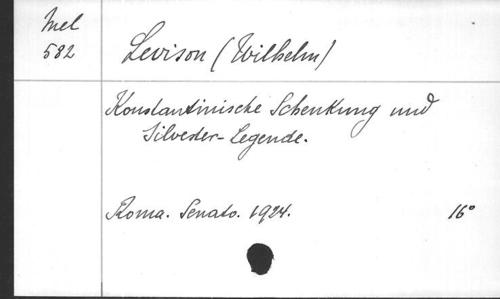 Mel
582
Levison (Wilhelm)
Konstantinische Schenkung und
Silvester-Legende.
Roma. Senato. 1924. 16°